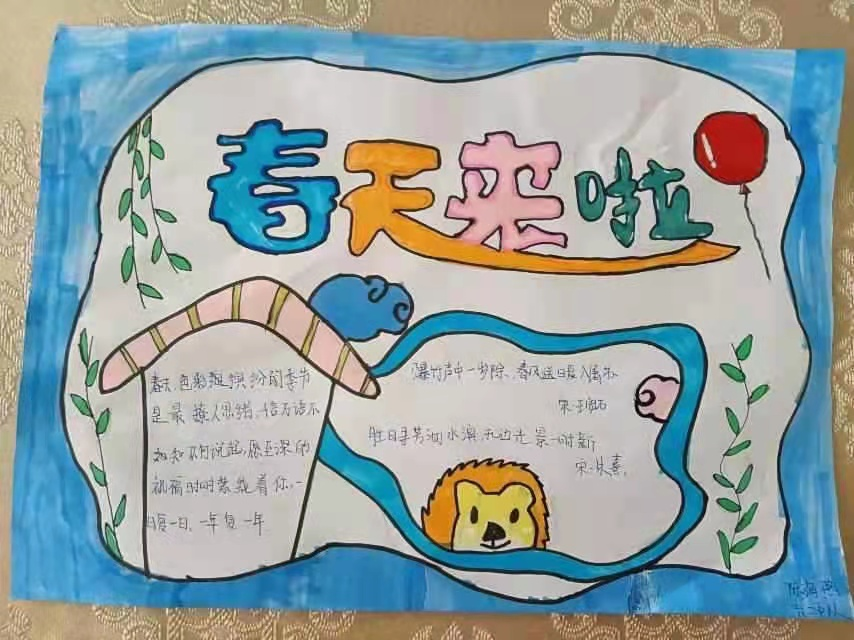 春天来啦
春天,色彩缤纷的季节
是最撩人思绪,千言万语不
知如何说起,愿至深的
祝福时时萦绕着你,一
日复一日,一年复一年
爆竹声中一岁除,春风送暖入屠苏
宋·王安石
胜日寻芳泗水滨,无边光景一时新
宋·朱熹。